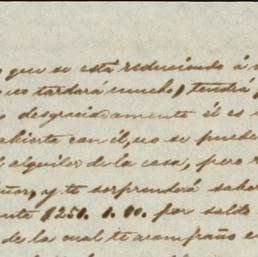 que se está reduciendo á
no tardará mucho, tendrá
desgraciadamente él es
abierta con él, no se puede
alquiler de la casa, pero
y te sorprenderá saber
1251. 1.00. por saldo
de la cual te acompaño